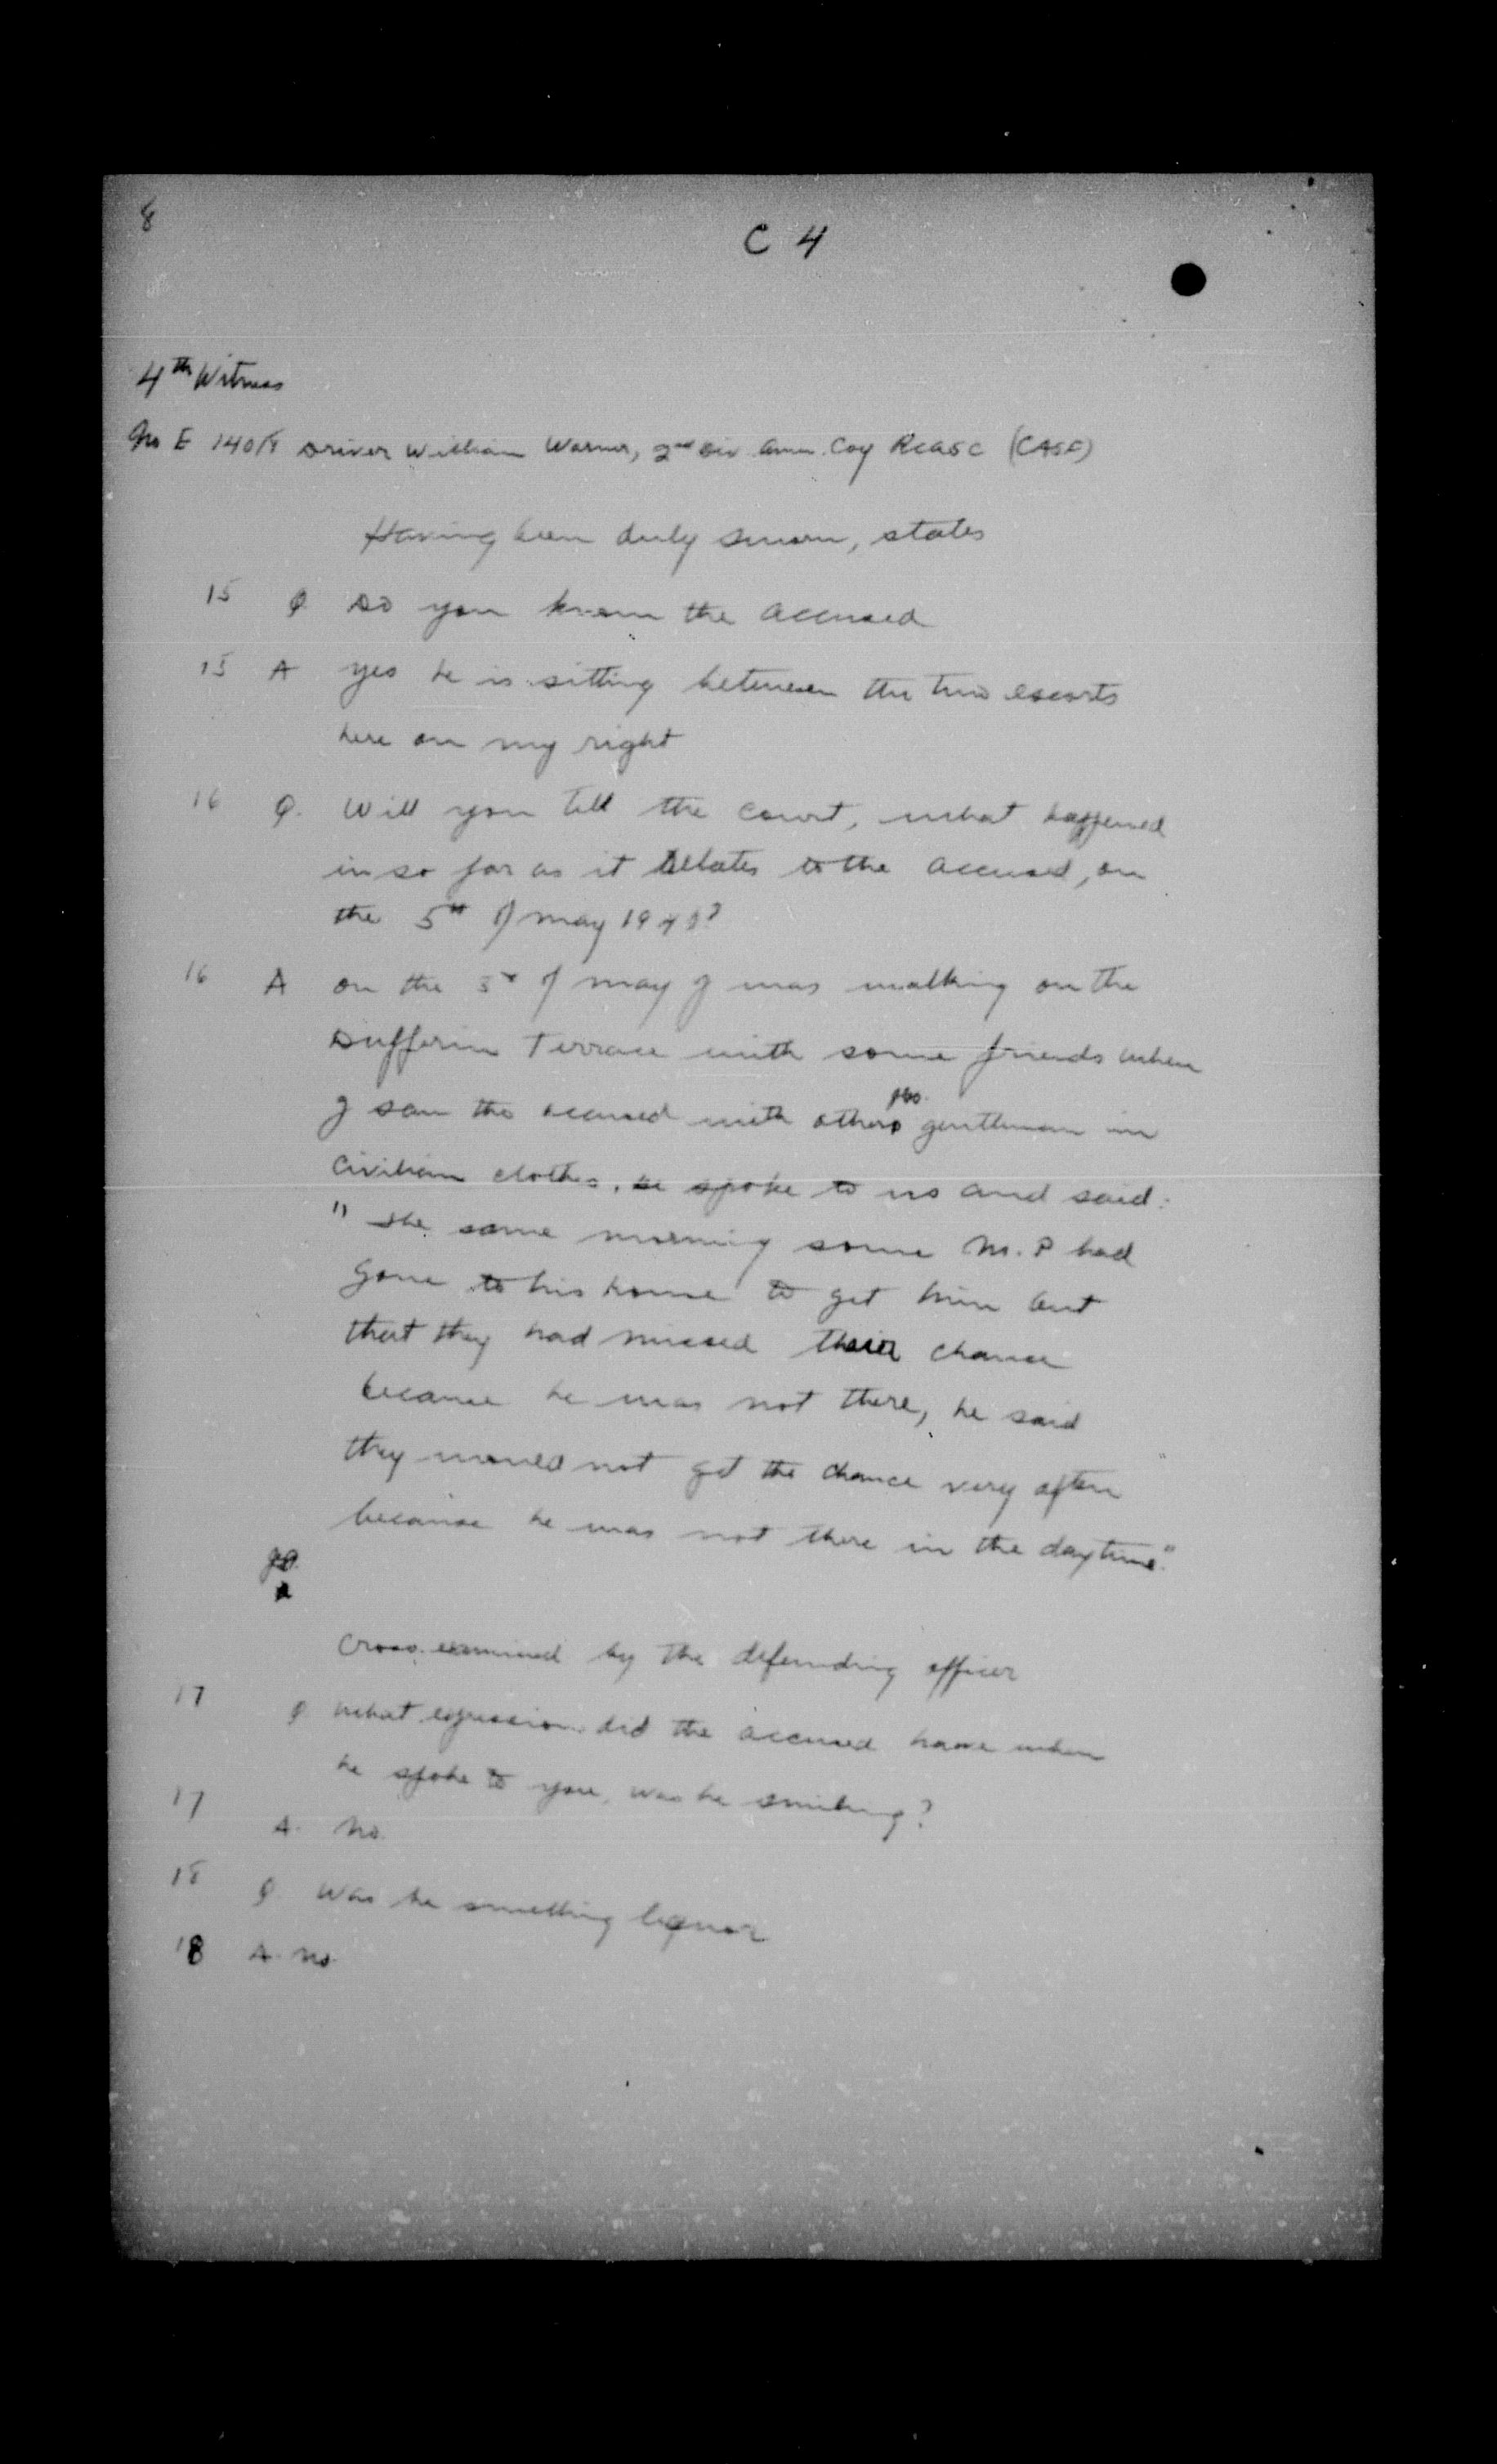 8
C 4
4th Witness
No E Driver William Warner, 2nd Div Amm. Coy RCASC (CASF)
Having been duly sworn, states
15 Q Do you know the accused
15 A yes he is sitting between the two escorts
here on my right
16 Q. Will you tell the court, what happened
in so far as it relates to the accused, on
the 5th of may 1940?
16 A on the 5th of may I was walking on the
Dufferin Terrace with some friends when
I saw the accused with others gentleman in
civilian clothes. he spoke to us and said:
" The same morning some M.P had
gone to his home to get him but
that they had missed their chance
because he was not there, he said
they would not get the chance very often
because he was not there in the daytime."
Cross. exmined by the defending officer
17 Q What expression did the accused have when
he spoke to you, was he smiling?
17 A. No.
18 Q Was he smelling liquor
18 A. No.